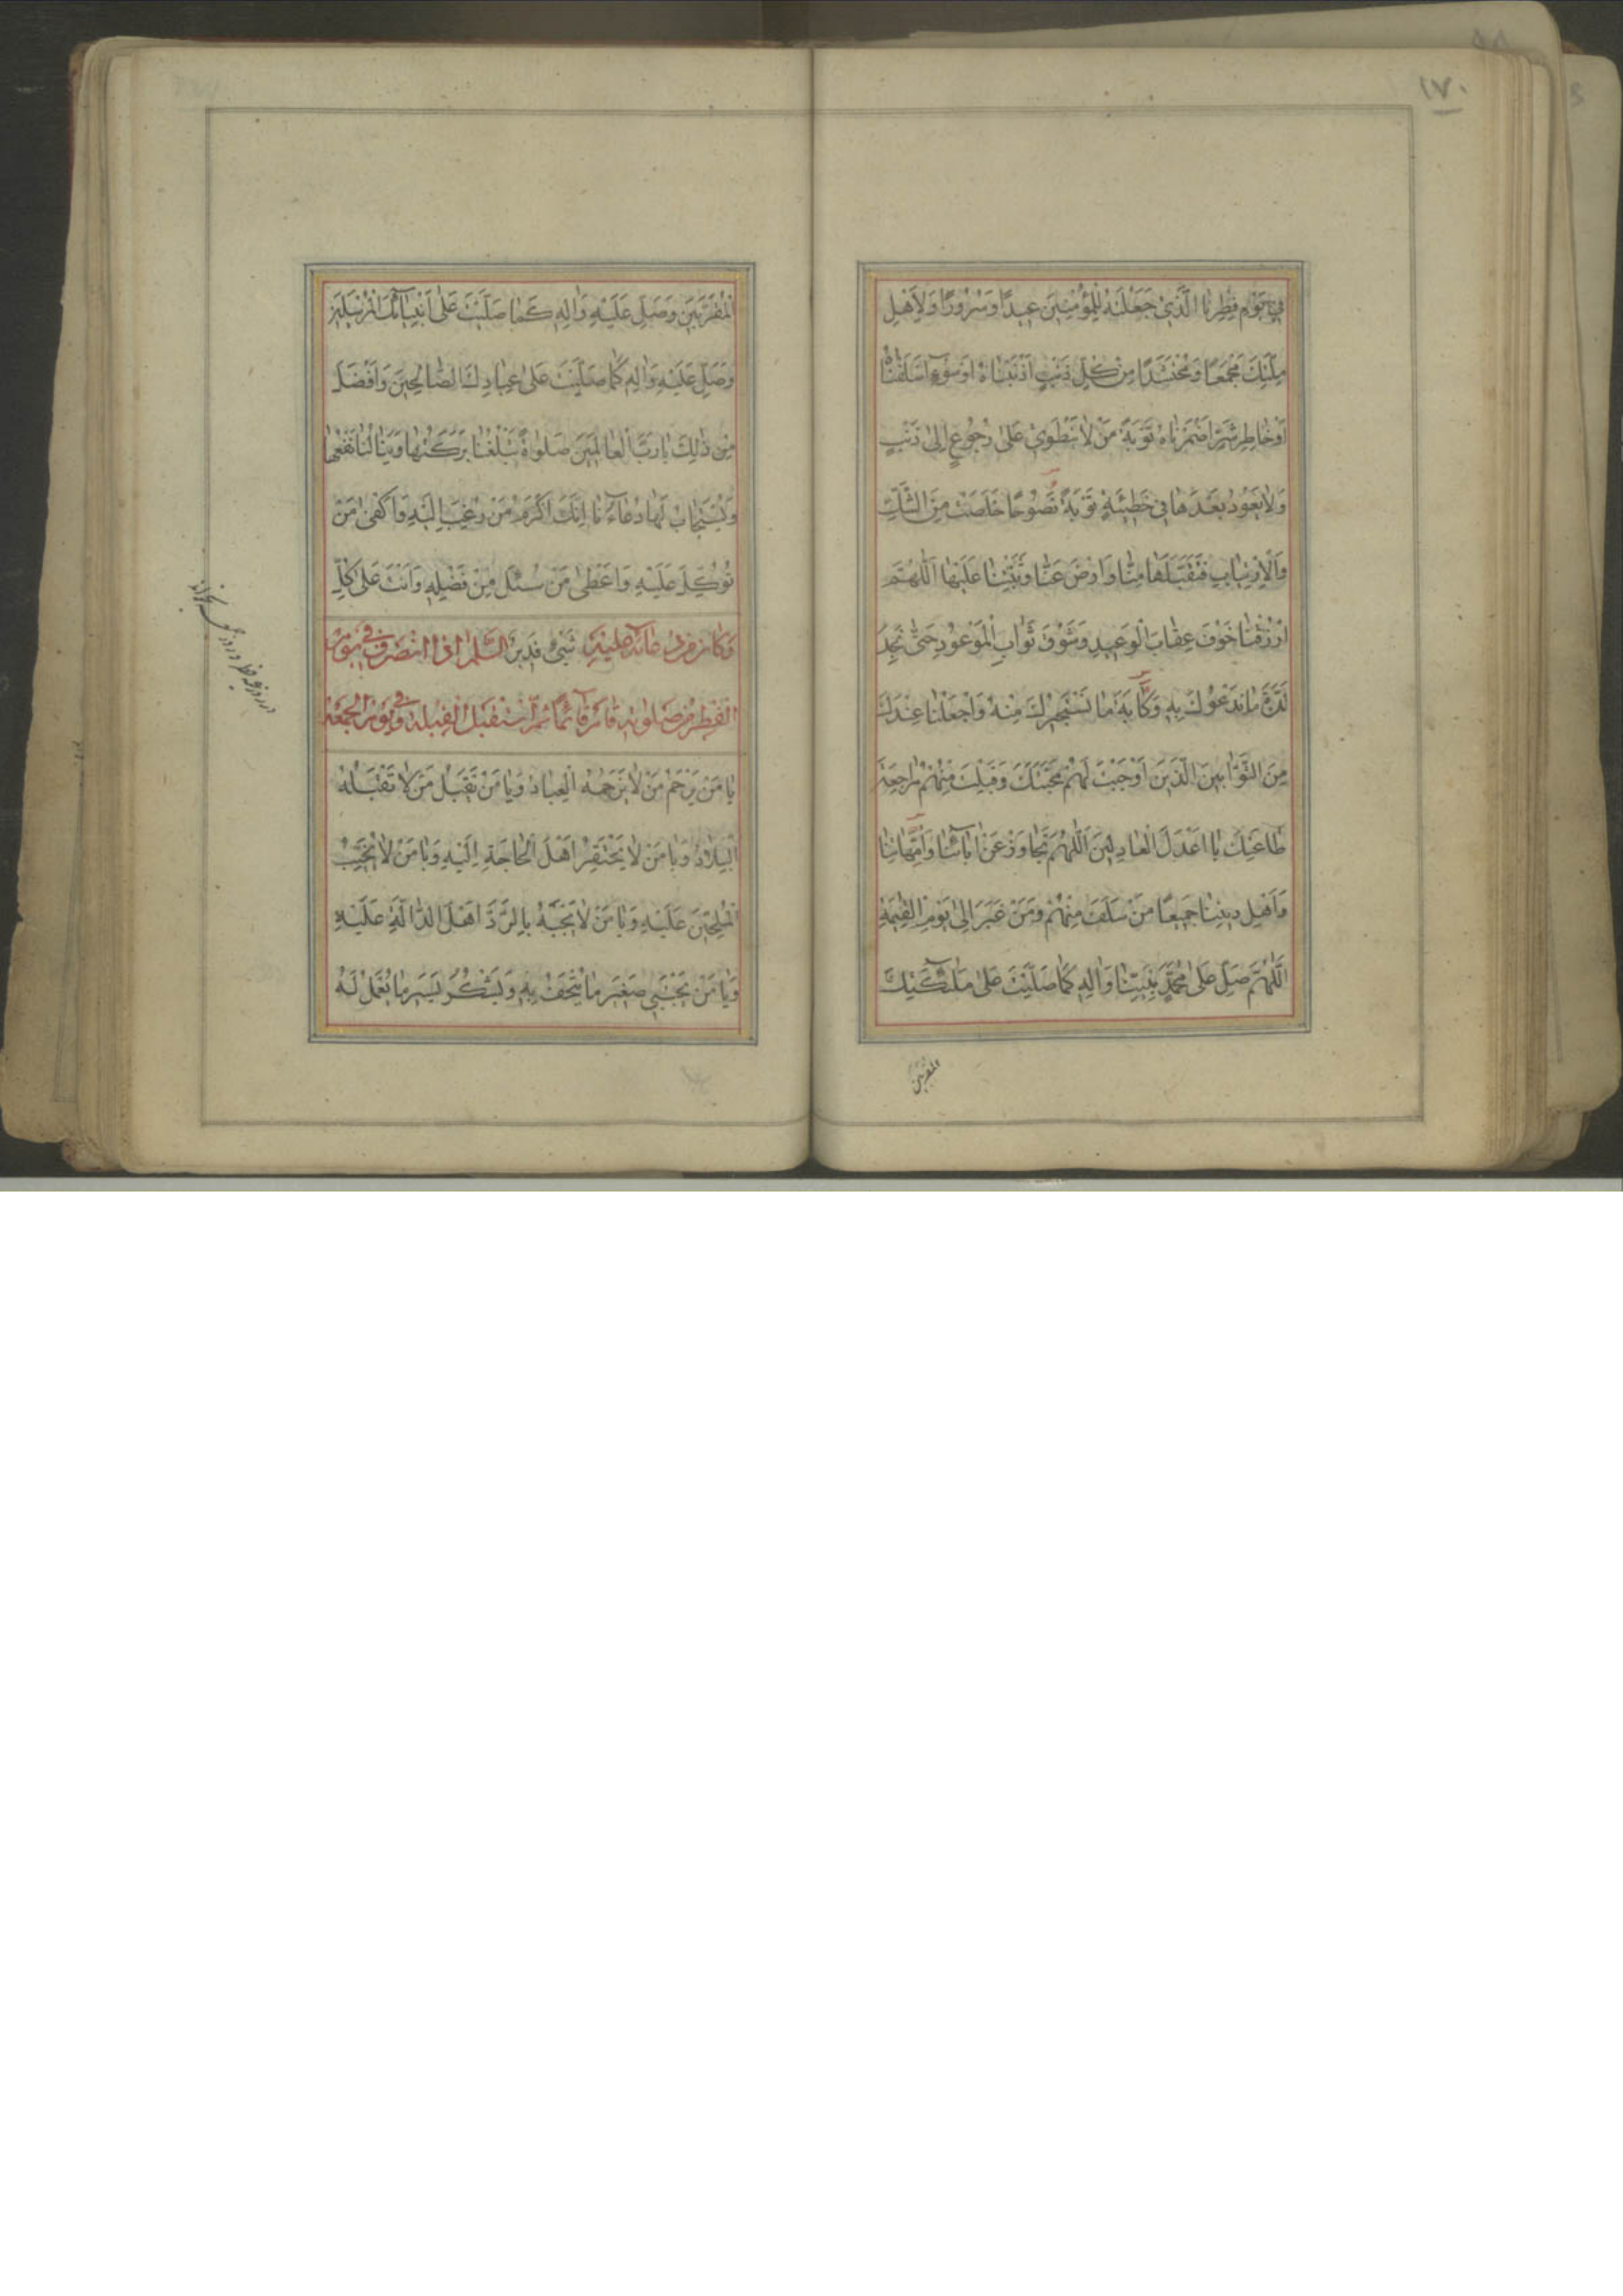 ١٧٠
فِي يَوْمِ فِطْرِنَا الَّذِي جَعَلْتَهُ لِلْمُؤْمِنِينَ عِيدًا وَسُرُورًا وَلِأَهْلِ
مِلَّتِكَ مَجْمَعًا وَمُحْتَشَدًا مِنْ كُلِّ ذَنْبٍ أَذْنَبْنَاهُ أَوْ سُوءٍ أَسْلَفْنَاهُ
أَوْ خَاطِرِ شَرٍّ أَضْمَرْنَاهُ تَوْبَةَ مَنْ لَا يَنْطَوِي عَلَى رُجُوعٍ إِلَى ذَنْبٍ
وَلَا يَعُودُ بَعْدَهَا فِي خَطِيئَةٍ تَوْبَةً نَصُوحًا خَلَصَتْ مِنَ الشَّكِّ
وَالِارْتِيَابِ فَتَقَبَّلْهَا مِنَّا وَارْضَ عَنَّا وَثَبِّتْنَا عَلَيْهَا اللَّهُمَّ
ارْزُقْنَا خَوْفَ عِقَابِ الْوَعِيدِ وَشَوْقَ ثَوَابِ الْمَوْعُودِ حَتَّى نَجِدَ
لَذَّةَ مَا نَدْعُوكَ بِهِ وَكَآبَةَ مَا نَسْتَجِيرُكَ مِنْهُ وَاجْعَلْنَا عِنْدَكَ
مِنَ التَّوَّابِينَ الَّذِينَ أَوْجَبْتَ لَهُمْ مَحَبَّتَكَ وَقَبِلْتَ مِنْهُمْ مُرَاجَعَةَ
طَاعَتِكَ يَا أَعْدَلَ الْعَادِلِينَ اللَّهُمَّ تَجَاوَزْ عَنْ آبَائِنَا وَأُمَّهَاتِنَا
وَأَهْلِ دِينِنَا جَمِيعًا مَنْ سَلَفَ مِنْهُمْ وَمَنْ غَبَرَ إِلَى يَوْمِ الْقِيمَةِ
اللَّهُمَّ صَلِّ عَلَى مُحَمَّدٍ نَبِيِّنَا وَآلِهِ كَمَا صَلَّيْتَ عَلَى مَلَٰئِكَتِكَ
المقربين
الْمُقَرَّبِينَ وَصَلِّ عَلَيْهِ وَآلِهِ كَمَا صَلَّيْتَ عَلَى أَنْبِيَائِكَ الْمُرْسَلِينَ
وَصَلِّ عَلَيْهِ وَآلِهِ كَمَا صَلَّيْتَ عَلَى عِبَادِكَ الصَّالِحِينَ وَأَفْضَلَ
مِنْ ذَلِكَ يَا رَبَّ الْعَالَمِينَ صَلَوَاةً تَبْلُغُنَا بَرَكَتُهَا وَيَنَالُنَا نَفْعُهَا
وَيُسْتَجَابُ لَهَا دُعَاؤُنَا إِنَّكَ أَكْرَمُ مَنْ رُغِبَ إِلَيْهِ وَأَكْفَى مَنْ
تُوُكِّلَ عَلَيْهِ وَأَعْطَى مَنْ سُئِلَ مِنْ فَضْلِهِ وَأَنْتَ عَلَى كُلِّ
وَكَانَ مِنْ دُعَائِهِ عَلَيْهِ شَيْءٍ قَدِيرٌ السَّلَمُ إِذَا انْصَرَفَ فِي يَوْمِ
الْفِطْرِ مِنْ صَلَوتِهِ قَامَ قَائِمًا ثُمَّ اسْتَقْبَلَ الْقِبْلَةَ وَفِي يَوْمِ الْجُمُعَةِ
يَا مَنْ يَرْحَمُ مَنْ لَا يَرْحَمُهُ الْعِبَادُ وَيَا مَنْ يَقْبَلُ مَنْ لَا تَقْبَلُهُ
الْبِلَادُ وَيَا مَنْ لَا يَحْتَقِرُ أَهْلَ الْحَاجَةِ إِلَيْهِ وَيَا مَنْ لَا يُخَيِّبُ
الْمُلِحِّينَ عَلَيْهِ وَيَا مَنْ لَا يَجْبَهُ بِالرَّدِّ أَهْلَ الدَّالَّةِ عَلَيْهِ
وَيَا مَنْ يَجْتَبِي صَغِيرَ مَا يُتْحَفُ بِهِ وَيَشْكُرُ يَسِيرَ مَا يُعْمَلُ لَهُ